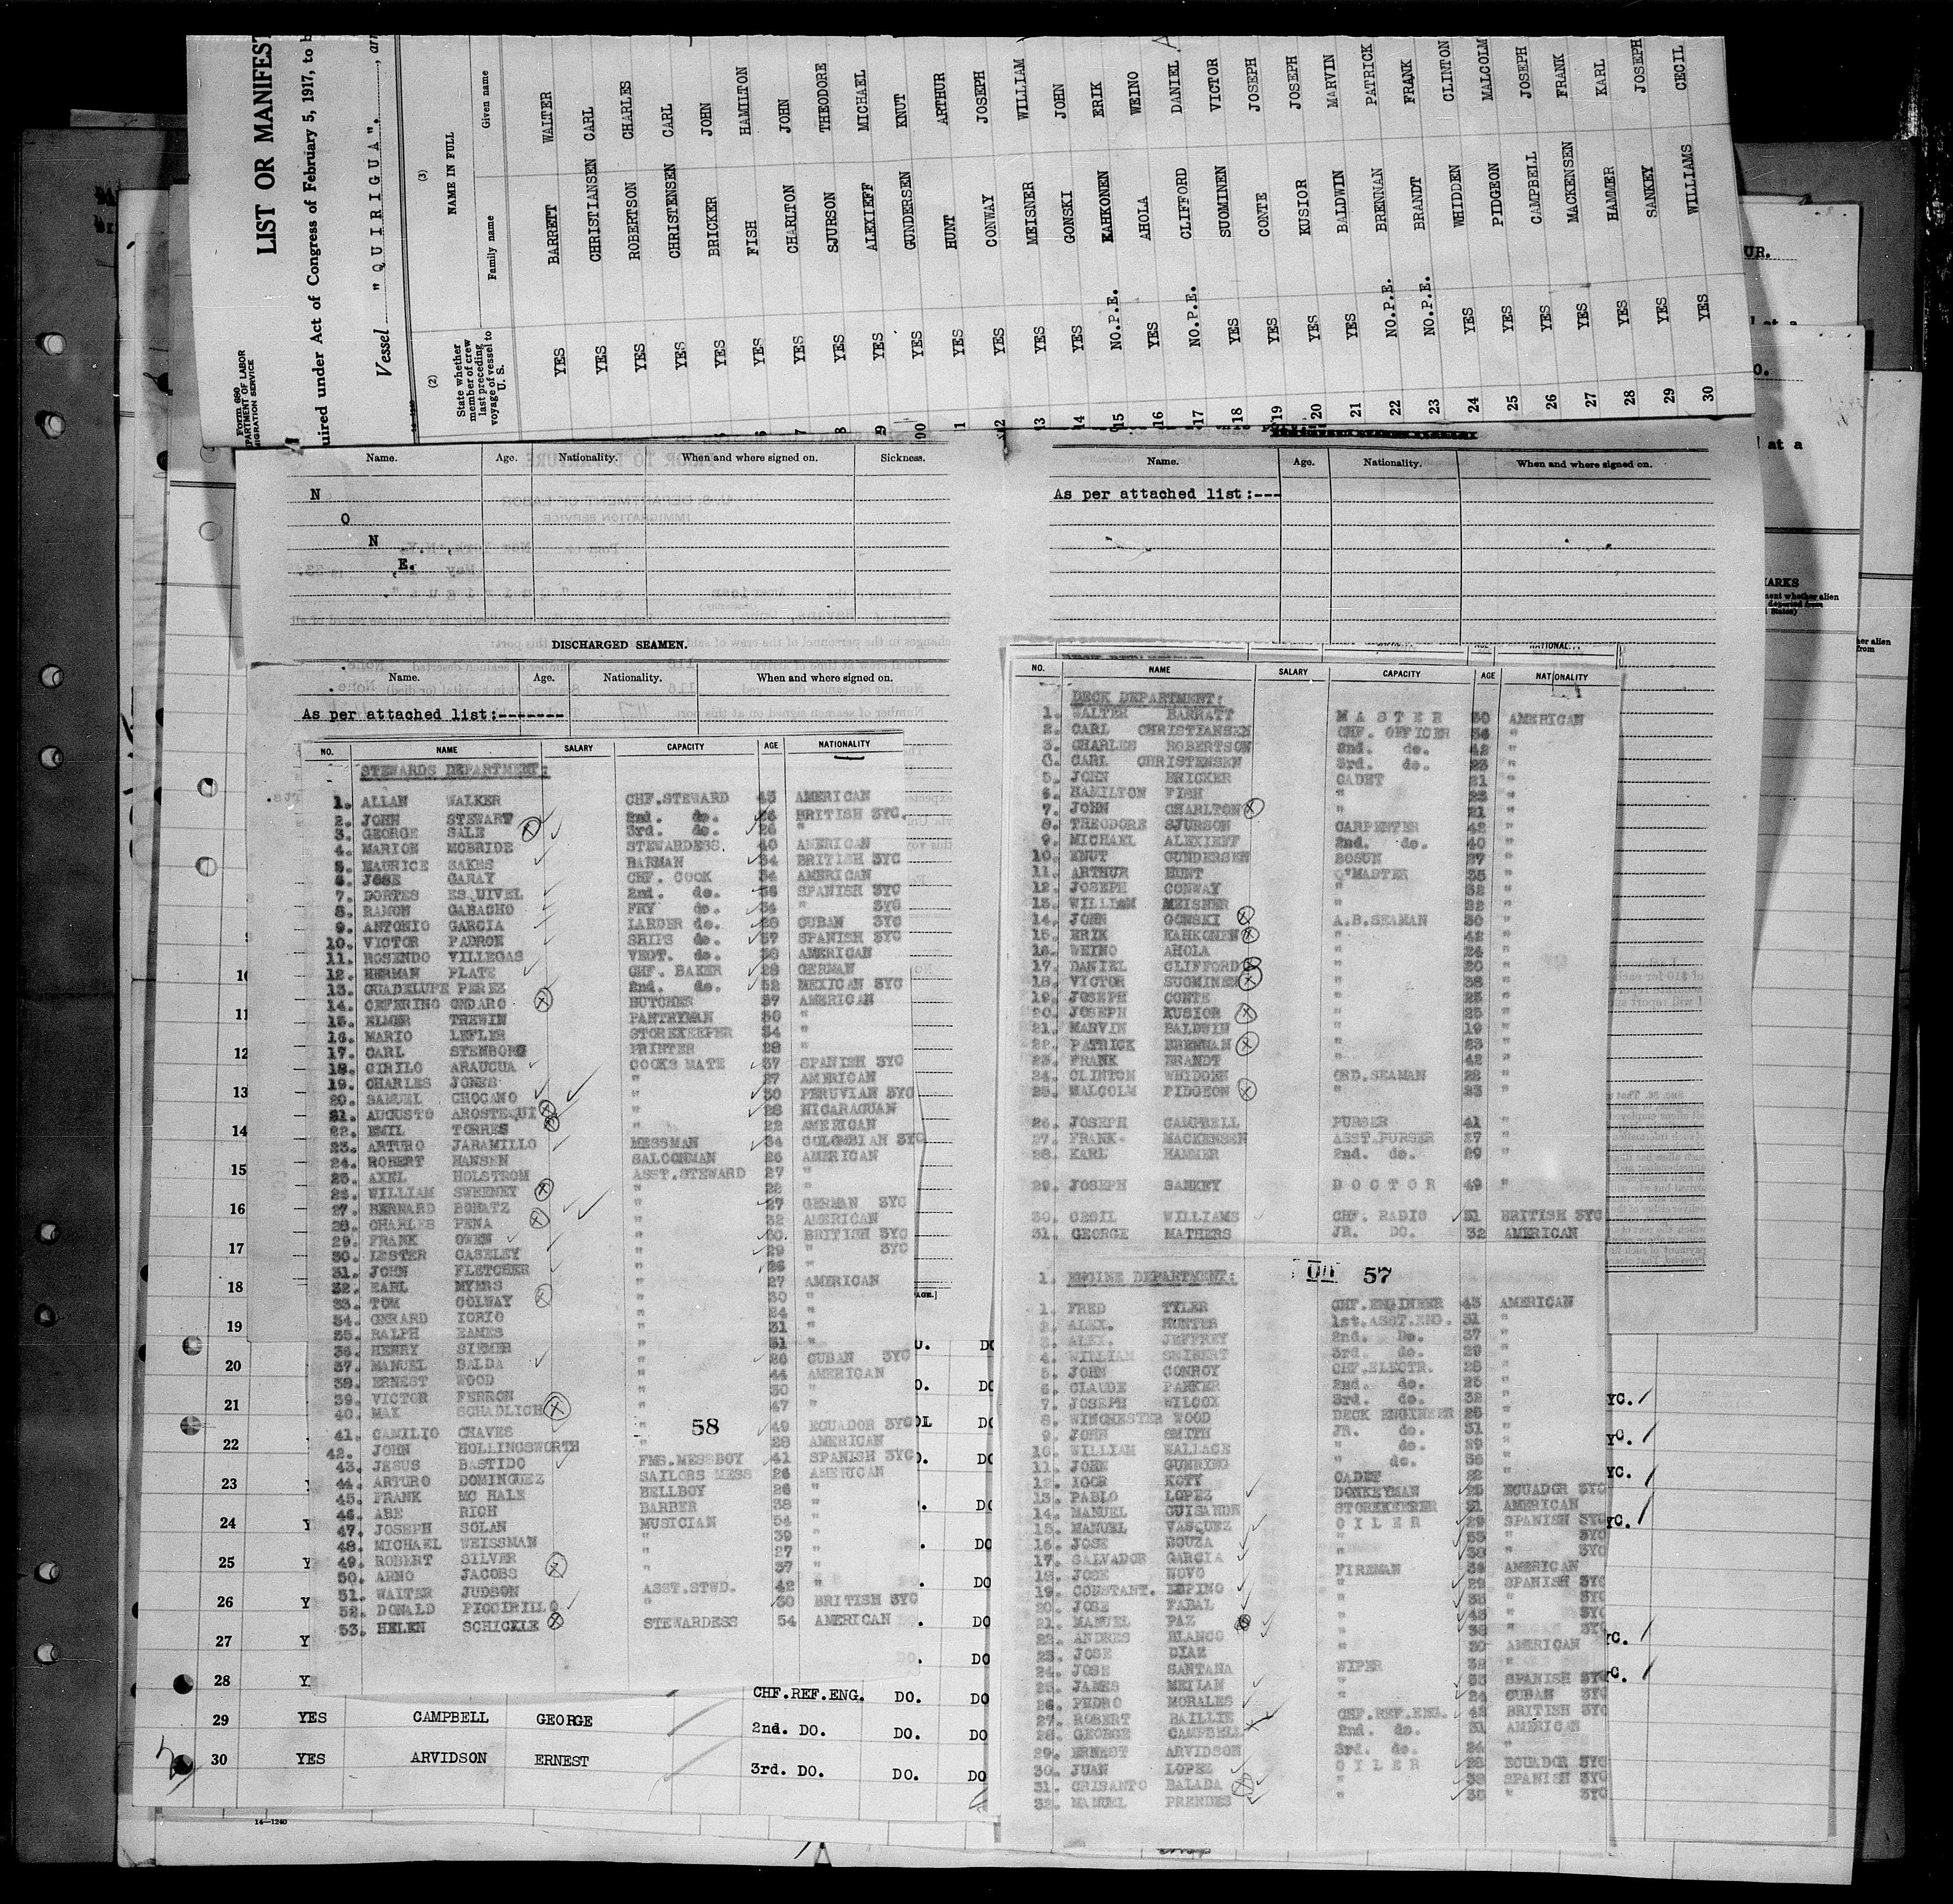 LIST OR MANIFEST
Form 689
MIGRATION SERVICE
uired under Act of Congress of February 5, 1917, to b
Vessel "QUIRIGUA", arr
(2) (3)
State whether member of crew last preceding voyage of vessel to U. S.
NAME IN FULL
Family name Given name
YES BARRETT WALTER
YES CHRISTIANSEN CARL
YES ROBERTSON CHARLES
YES CHRISTENSEN CARL
YES BRICKER JOHN
YES FISH HAMILTON
YES CHARLTON JOHN
YES SJURSON THEODORE
YES ALEXIEFF MICHAEL
YES GUNDERSEN KNUT
YES HUNT ARTHUR
YES CONWAY JOSEPH
YES MEISNER WILLIAM
14 YES GONSKI JOHN
15 NO.P.E. KAHKONEN ERIK
16 YES AHOLA WEINO
17 NO.P.E. CLIFFORD DANIEL
18 YES SUOMINEN VICTOR
19 YES CONTE JOSEPH
20 YES KUSIOR JOSEPH
21 YES BALDWIN MARVIN
22 NO.P.E. BRENNAN PATRICK
23 NO.P.E. BRANDT FRANK
24 YES WHIDDEN CLINTON
25 YES PIDGEON MALCOLM
26 YES CAMPBELL JOSEPH
27 YES MACKENSEN FRANK
28 YES HAMMER KARL
29 YES SANKEY JOSEPH
30 YES WILLIAMS CECIL
Name. Age. Nationality. When and where signed on. Sickness.
N
O
N
E.
DISCHARGED SEAMEN.
Name. Age. Nationality. When and where signed on.
As per attached list:-------
NO. NAME SALARY CAPACITY AGE NATIONALITY
STEWARDS DEPARTMENT:
1. ALLAN WALKER CHF.STEWARD 43 AMERICAN
2. JOHN STEWART 2nd. do. 26 BRITISH 3YC.
3. GEORGE SALE 3rd. do. 26 "
4. MARION MCBRIDE STEWARDESS 40 AMERICAN
5. MAURICE SAKES BARMAN 34 BRITISH 3YC
6. JOSE GARAY CHF. COOK 34 AMERICAN
7. DORTES ESQUIVEL 2nd. do. 36 SPANISH 3YC
8. RAMON GABACHO FRY do. 34 " 3YC
9. ANTONIO GARCIA LARDER do. 28 CUBAN 3YC
10. VICTOR PADRON SHIPS do. 37 SPANISH 3YC
11. ROSENDO VILLEGAS VEGT. do. 38 AMERICAN
12. HERMAN PLATE CHF. BAKER 28 GERMAN
13. GUADELUPE PEREZ 2nd. do. 52 MEXICAN 3YC
14. CEFERINO ONDARO BUTCHER 37 AMERICAN
15. ELMER TREWIN PANTRYMAN 30 "
16. MARIO LEFLER STOREKEEPER 34 "
17. CARL STENBORG PRINTER 28 "
18. CIRILO ARAUCUA COOKS MATE 37 SPANISH 3YC
19. CHARLES JONES " 27 AMERICAN
20. SAMUEL CHOCANO " 30 PERUVIAN 3YC
21. AUGUSTO AROSTEQUI " 28 NICARAGUAN
22. EMIL TORRES " 22 AMERICAN
23. ARTURO JARAMILLO MESSMAN 34 COLOMBIAN 3YC
24. ROBERT HANSEN SALOONMAN 26 AMERICAN
25. AXEL HOLSTROM ASST.STEWARD 27 "
26. WILLIAM SWEENEY " 22 "
27. BERNARD BONATZ " 27 GERMAN 3YC
28. CHARLES PENA " 32 AMERICAN
29. FRANK OWEN " 30 BRITISH 3YC
30. LESTER CASELEY " 29 " 3YC
31. JOHN FLETCHER " 26
32. EARL MYERS " 27 AMERICAN
33. TOM COLWAY " 30 "
34. GERARD IORIO " 24 "
35. RALPH EAMES " 31 "
36. HENRY SIEMER " 31
37. MANUEL BALDA " 26 CUBAN 3YC
38. ERNEST WOOD " 44 AMERICAN
39. VICTOR FERRON " 30 "
40. MAX SCHADLICH " 47 "
41. CAMILIO CHAVES 58 49 ECUADOR 3YC
42. JOHN HOLLINGSWORTH " 28 AMERICAN
43. JESUS BASTIDO FMS.MESSBOY 41 SPANISH 3YC
44. ARTURO DOMINGUEZ SAILORS MESS 26 AMERICAN
45. FRANK MC HALE BELLBOY 26 "
46. ABE RICH BARBER 38 "
47. JOSEPH SOLAN MUSICIAN 54 "
48. MICHAEL WEISSMAN " 39 "
49. ROBERT SILVER " 27 "
50. ARNO JACOBS " 37 "
51. WALTER JUDSON ASST.STWD. 42 "
52. DONALD PICCIRILLO " 30 BRITISH 3YC
53. HELEN SCHICKLE STEWARDESS 54 AMERICAN
CHF.REF.ENG. DO. DO
29 YES CAMPBELL GEORGE 2nd. DO. DO. DO
30 YES ARVIDSON ERNEST 3rd. DO. DO. DO
14—1240
Name. Age. Nationality. When and where signed on.
As per attached list:---
NO. NAME SALARY CAPACITY AGE NATIONALITY
DECK DEPARTMENT:
1. WALTER BARRATT MASTER 50 AMERICAN
2. CARL CHRISTIANSEN CHF. OFFICER 36 "
3. CHARLES ROBERTSON 2nd. do. 42 "
4. CARL CHRISTENSEN 3rd. do. 23 "
5. JOHN BRICKER CADET 21 "
6. HAMILTON FISH " 23 "
7. JOHN CHARLTON " 21 "
8. THEODORE SJURSON CARPENTER 42 "
9. MICHAEL ALEXIEFF 2nd. do. 40 "
10. KNUT GUNDERSEN BOSUN 27 "
11. ARTHUR HUNT Q'MASTER 35 "
12. JOSEPH CONWAY " 32 "
13. WILLIAM MEISNER " 22 "
14. JOHN GONSKI A.B.SEAMAN 30 "
15. ERIK KAHKONEN " 42 "
16. WEINO AHOLA " 24 "
17. DANIEL CLIFFORD " 20 "
18. VICTOR SUOMINEN " 38 "
19. JOSEPH CONTE " 23 "
20. JOSEPH KUSIOR " 25 "
21. MARVIN BALDWIN " 19 "
22. PATRICK BRENNAN " 23 "
23. FRANK BRANDT " 42 "
24. CLINTON WHIDDEN ORD.SEAMAN 22 "
25. MALCOLM PIDGEON " 23 "
26. JOSEPH CAMPBELL PURSER 41 "
27. FRANK MACKENSEN ASST.PURSER 27 "
28. KARL HAMMER 2nd. do. 29 "
29. JOSEPH SANKEY DOCTOR 49 "
30. CECIL WILLIAMS CHF. RADIO 31 BRITISH 3YC
31. GEORGE MATHERS JR. DO. 32 AMERICAN
57
1. ENGINE DEPARTMENT:
1. FRED TYLER CHF.ENGINEER 43 AMERICAN
2. ALEX. HUNTER 1st.ASST.ENG. 31 "
3. ALEX. JEFFREY 2nd. Do. 37 "
4. WILLIAM SEIBERT 3rd. do. 29 "
5. JOHN CONROY CHF.ELECTR. 28 "
6. CLAUDE PARKER 2nd. do. 25 "
7. JOSEPH WILCOX 3rd. do. 32 "
8. WINCHESTER WOOD DECK ENGINEER 25 "
9. JOHN SMITH JR. do. 31 "
10. WILLIAM WALLACE " do. 29 "
11. JOHN GUNNING " do. 36 "
12. IGOR KOTY CADET 22 "
13. PABLO LOPEZ DONKEYMAN 25 ECUADOR 3YC
14. MANUEL GUISANDE STOREKEEPER 31 AMERICAN
15. MANUEL VASQUEZ OILER 29 SPANISH 3YC
16. JOSE BOUZA " 53 " 3YC
17. SALVADOR GARCIA " 38 " 3YC
18. JOSE NOVO FIREMAN 38 AMERICAN
19. CONSTANT. ESPINO " 29 SPANISH 3YC
20. JOSE FABAL " 38 " 3YC
21. MANUEL PAZ " 43 " 3YC
22. ANDRES BLANCO " 38 " 3YC
23. JOSE DIAZ " 30 AMERICAN
24. JOSE SANTANA WIPER 38 "
25. JAMES MEILAN " 33 SPANISH 3YC
26. PEDRO MORALES " 24 CUBAN 3YC
27. ROBERT BAILLIE CHF.REF.ENG. 42 BRITISH 3YC
28. GEORGE CAMPBELL 2nd. do. 31 AMERICAN
29. ERNEST ARVIDSON 3rd. do. 24 "
30. JUAN LOPEZ OILER 28 ECUADOR 3YC
31. CRISANTO BALADA " 38 SPANISH 3YC
32. MANUEL PRENDES " 35 " 3YC